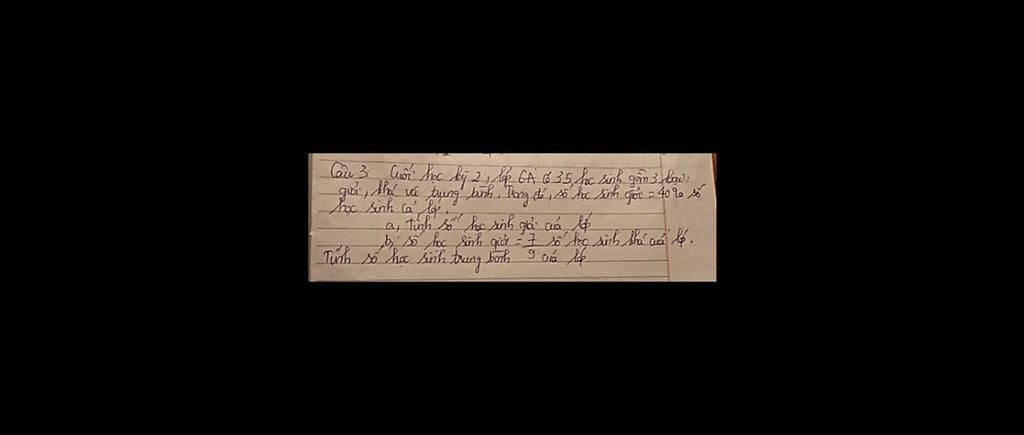 Câu 3: Cuối học kỳ 2, lớp 6A có 35 học sinh gồm 3 loại:
giỏi, khá và trung bình. Trong đó, số học sinh giỏi = 40% số
học sinh cả lớp.
a, Tính số học sinh giỏi của lớp
b, số học sinh giỏi = 7/9 số học sinh khá của lớp.
Tính số học sinh trung bình của lớp